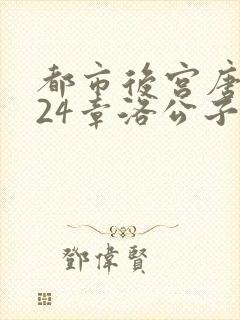 都市後宮唐
24章洛公子
鄧偉賢